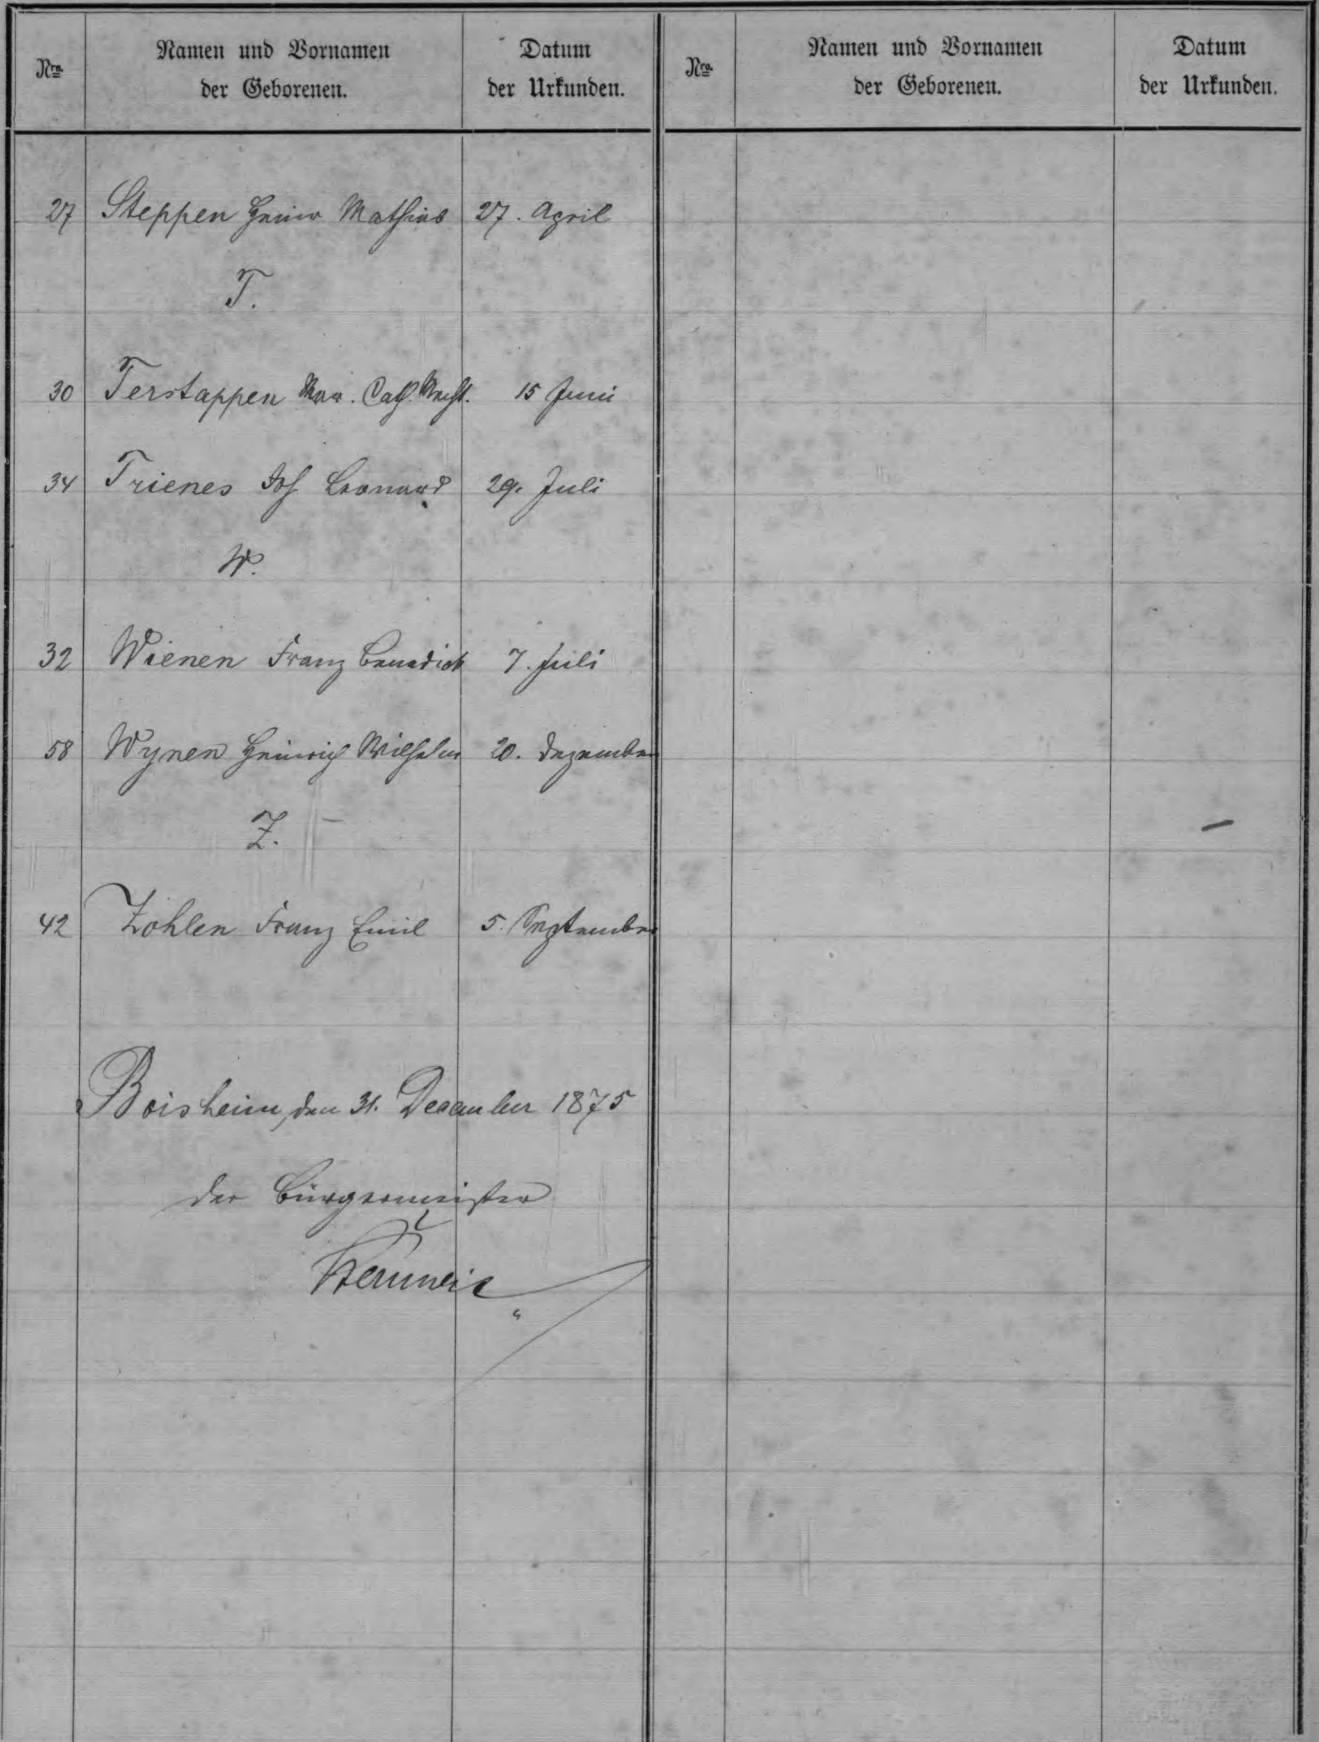 Nro. Namen und Vornamen der Geborenen. Datum der Urkunden. Nro. Namen und Vornamen der Geborenen. Datum der Urkunden.
27 Steppen Heinr Mathias 27. April
T.
30 Terstappen Mar. Cath. Mecht. 15 Juni
34 Trienes Joh Leonard 29. Juli
W.
32 Wienen Franz Benedick 7. Juli
58 Wynen Heinrich Wilhelm 20. Dezember
Z.
42 Zohlen Franz Emil 5. September
Boisheim, den 31. December 1875
Der Bürgermeister